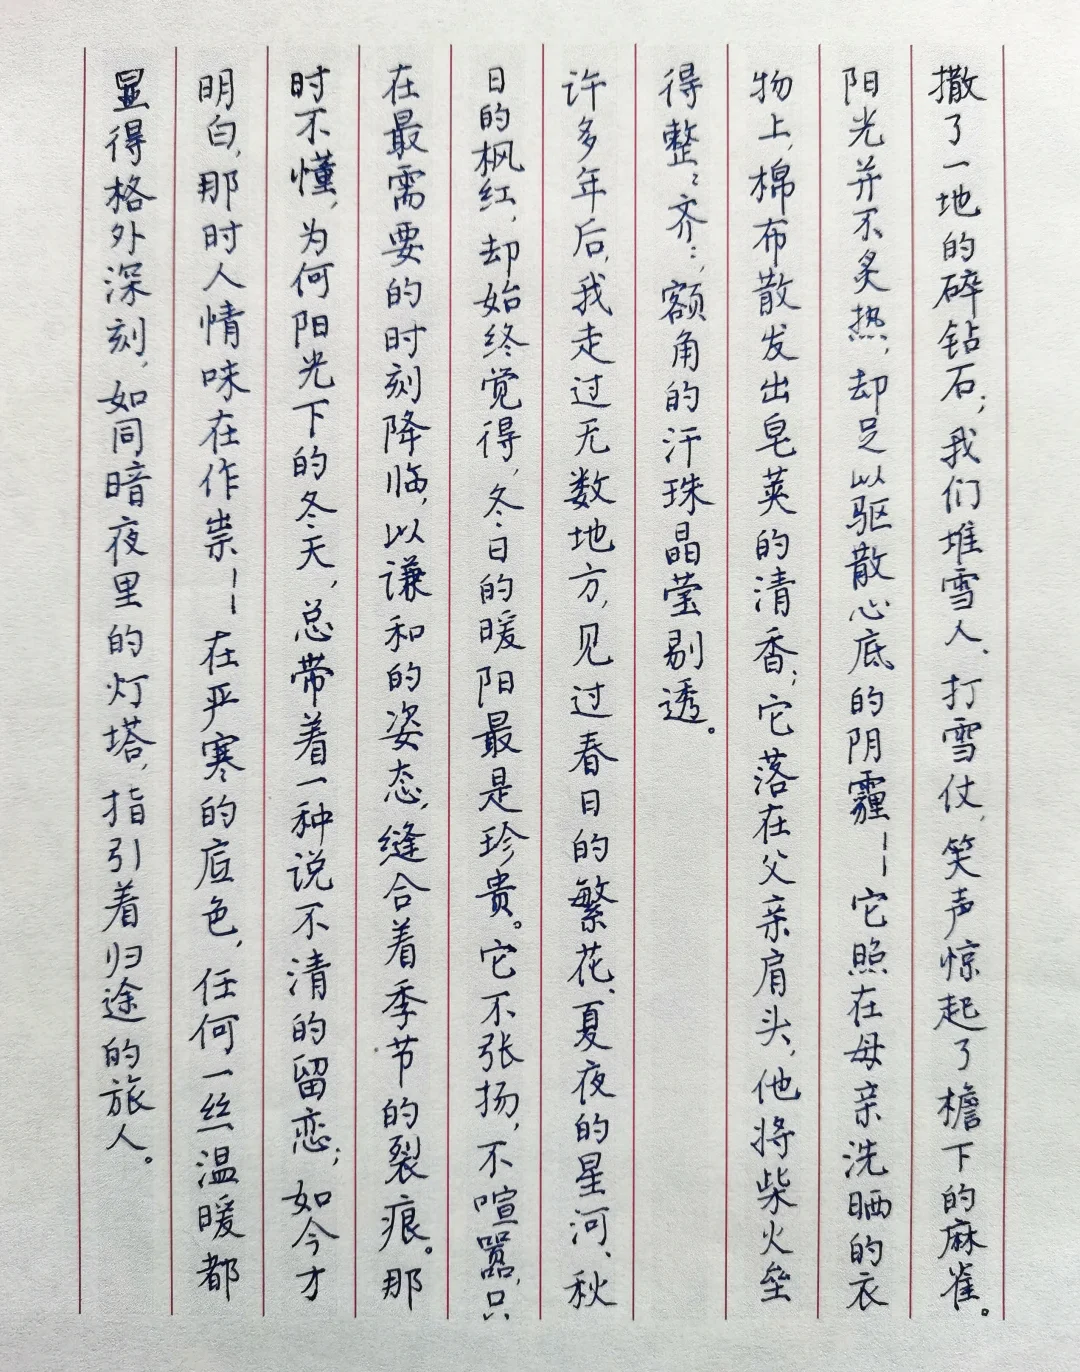 撒了一地的碎钻石；我们堆雪人、打雪仗，笑声惊起了檐下的麻雀。
阳光并不炙热，却足以驱散心底的阴霾——它照在母亲洗晒的衣
物上，棉布散发出皂荚的清香；它落在父亲肩头，他将柴火垒
得整〻齐〻，额角的汗珠晶莹剔透。
许多年后，我走过无数地方，见过春日的繁花、夏夜的星河、秋
日的枫红，却始终觉得，冬日的暖阳最是珍贵。它不张扬，不喧嚣，只
在最需要的时刻降临，以谦和的姿态，缝合着季节的裂痕。那
时不懂，为何阳光下的冬天，总带着一种说不清的留恋；如今才
明白，那时人情味在作祟——在严寒的底色，任何一丝温暖都
显得格外深刻，如同暗夜里的灯塔，指引着归途的旅人。